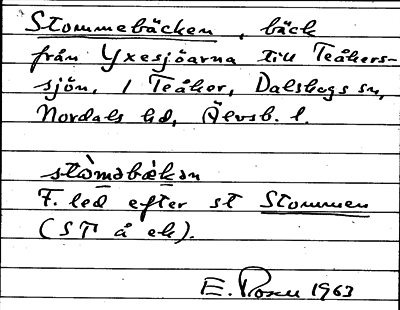 Stommebäcken, bäck
från Yxesjöarna till Teåkers-
sjön, i Teåker, Dalskogs sn,
Nordals hd, Älvsb. l.
stòmǝbæ̀kǝn
F. led efter st Stommen
(ST å ek).
E. Rosen 1963